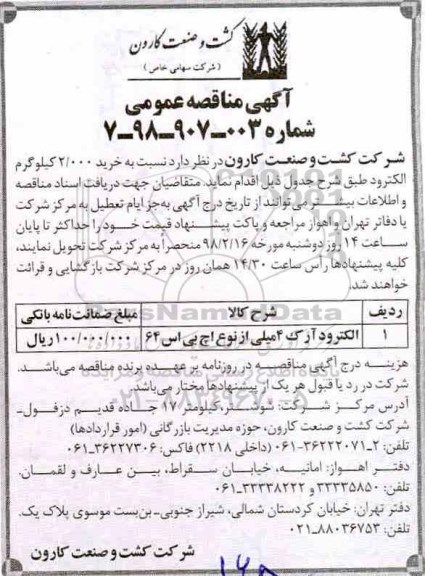 کشت و صنعت کارون
( شرکت سهامی خاص )
آگهی مناقصه عمومی
شماره ۰۰۳-۹۰۷-۹۸-۷
شرکت کشت و صنعت کارون در نظر دارد نسبت به خرید ۲/۰۰۰ کیلوگرم
الکترود طبق شرح جدول ذیل اقدام نماید. متقاضیان جهت دریافت اسناد مناقصه
و اطلاعات بیشتر می‌توانند از تاریخ درج آگهی به‌جز ایام تعطیل به مرکز شرکت
یا دفاتر تهران و اهواز مراجعه و پاکت پیشنهاد قیمت خود را حداکثر تا پایان
ساعت ۱۴ روز دوشنبه مورخه ۹۸/۲/۱۶ منحصراً به مرکز شرکت تحویل نمایند،
کلیه پیشنهادها رأس ساعت ۱۴/۳۰ همان روز در مرکز شرکت بازگشایی و قرائت
خواهند شد.
ردیف شرح کالا مبلغ ضمانت‌نامه بانکی
۱ الکترود آرک ۴میلی از نوع اچ بی اس ۶۴ ۱۰۰/۰۰۰/۰۰۰ ریال
هزینه درج آگهی مناقصه در روزنامه بر عهده برنده مناقصه می‌باشد.
شرکت در رد یا قبول هر یک از پیشنهادها مختار می‌باشد.
آدرس مرکز شرکت: شوشتر، کیلومتر ۱۷ جاده قدیم دزفول-
شرکت کشت و صنعت کارون، حوزه مدیریت بازرگانی (امور قراردادها)
تلفن: ۲-۳۶۲۲۲۰۷۱-۰۶۱ (داخلی ۲۲۱۸) فاکس: ۳۶۲۲۷۳۰۶-۰۶۱
دفتر اهواز: امانیه، خیابان سقراط، بین عارف و لقمان.
تلفن: ۳۳۳۳۵۸۵۰ و ۳۳۳۳۸۲۲۲-۰۶۱
دفتر تهران: خیابان کردستان شمالی، شیراز جنوبی- بن‌بست موسوی پلاک یک.
تلفن: ۸۸۰۳۶۷۵۳-۰۲۱
شرکت کشت و صنعت کارون